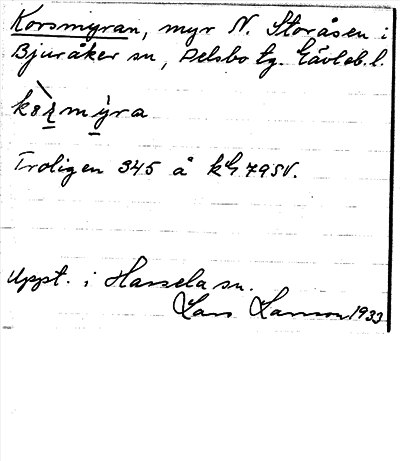 Korsmyran, myr N. Storåsen i
Bjuråker sn, Delsbo tg. Gävleb. l.
Troligen 345 å kbl 79SV.
Uppt. i Hassela sn.
Lars Larsson 1933